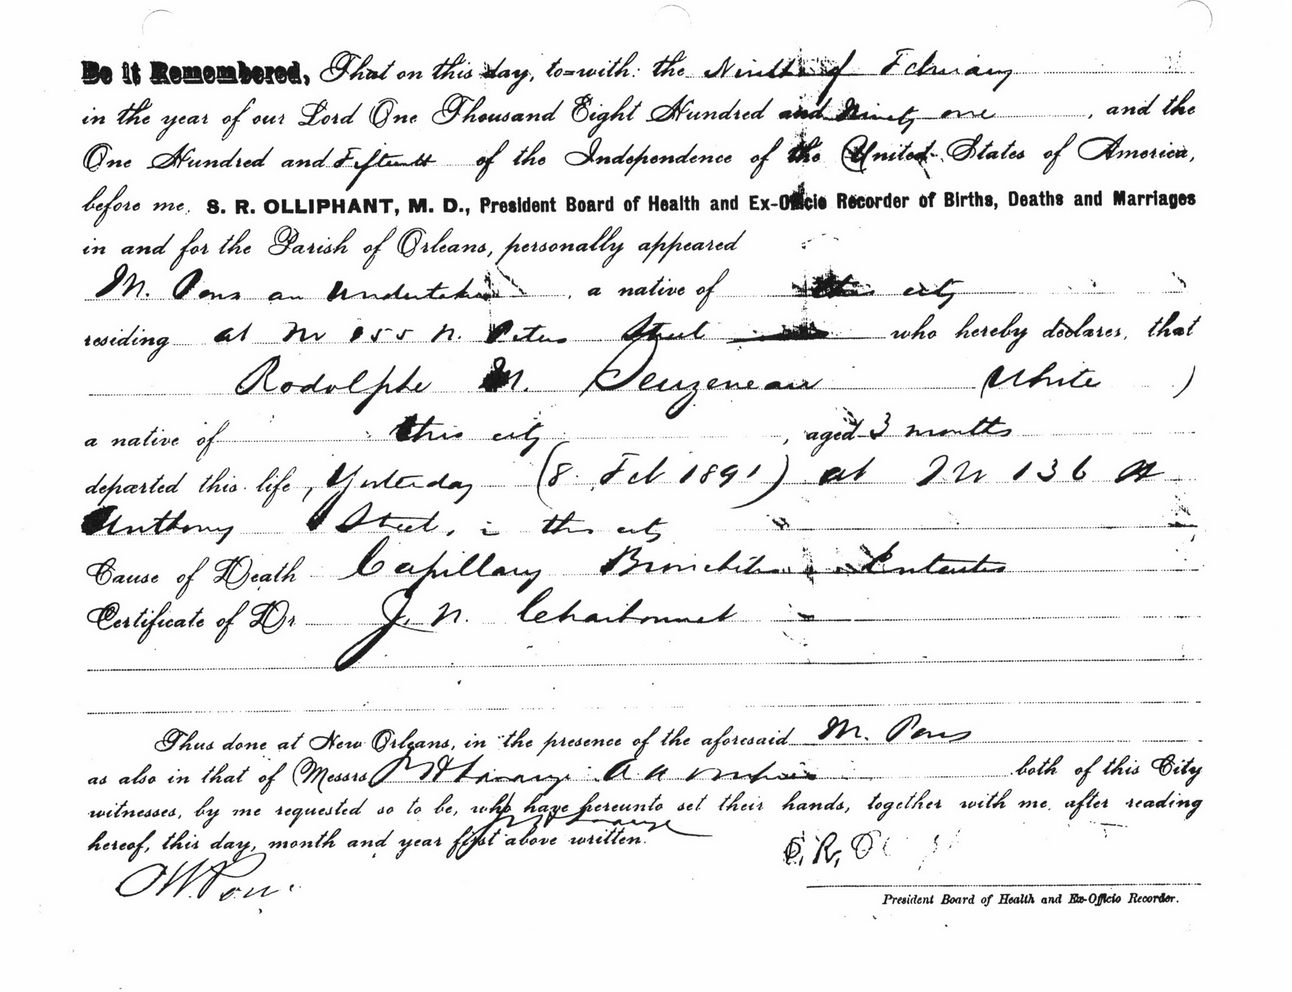 Be it Remembered, That on this day, to=with: the Ninth of February
in the year of our Lord One Thousand Eight Hundred and Ninety one, and the
One Hundred and Fifteenth of the Independence of the United States of America,
before me, S. R. OLLIPHANT, M. D., President Board of Health and Ex-Officio Recorder of Births, Deaths and Marriages
in and for the Parish of Orleans, personally appeared
M. Pons an Undertaker, a native of this city
residing at No 955 N. Peters Street who hereby declares, that
Rodolphe M. (White)
a native of this city, aged 3 months
departed this life, Yesterday (8 Feb 1891) at No 136 St
Anthony Street, in this city
Cause of Death Capillary Bronchitis Enteritis
Certificate of Dr J. N. Charbonnet
Thus done at New Orleans, in the presence of the aforesaid M. Pons
as also in that of Messrs both of this City
witnesses, by me requested so to be, who have hereunto set their hands, together with me, after reading
hereof, this day, month and year first above written.
S. R.
President Board of Health and Ex-Officio Recorder.